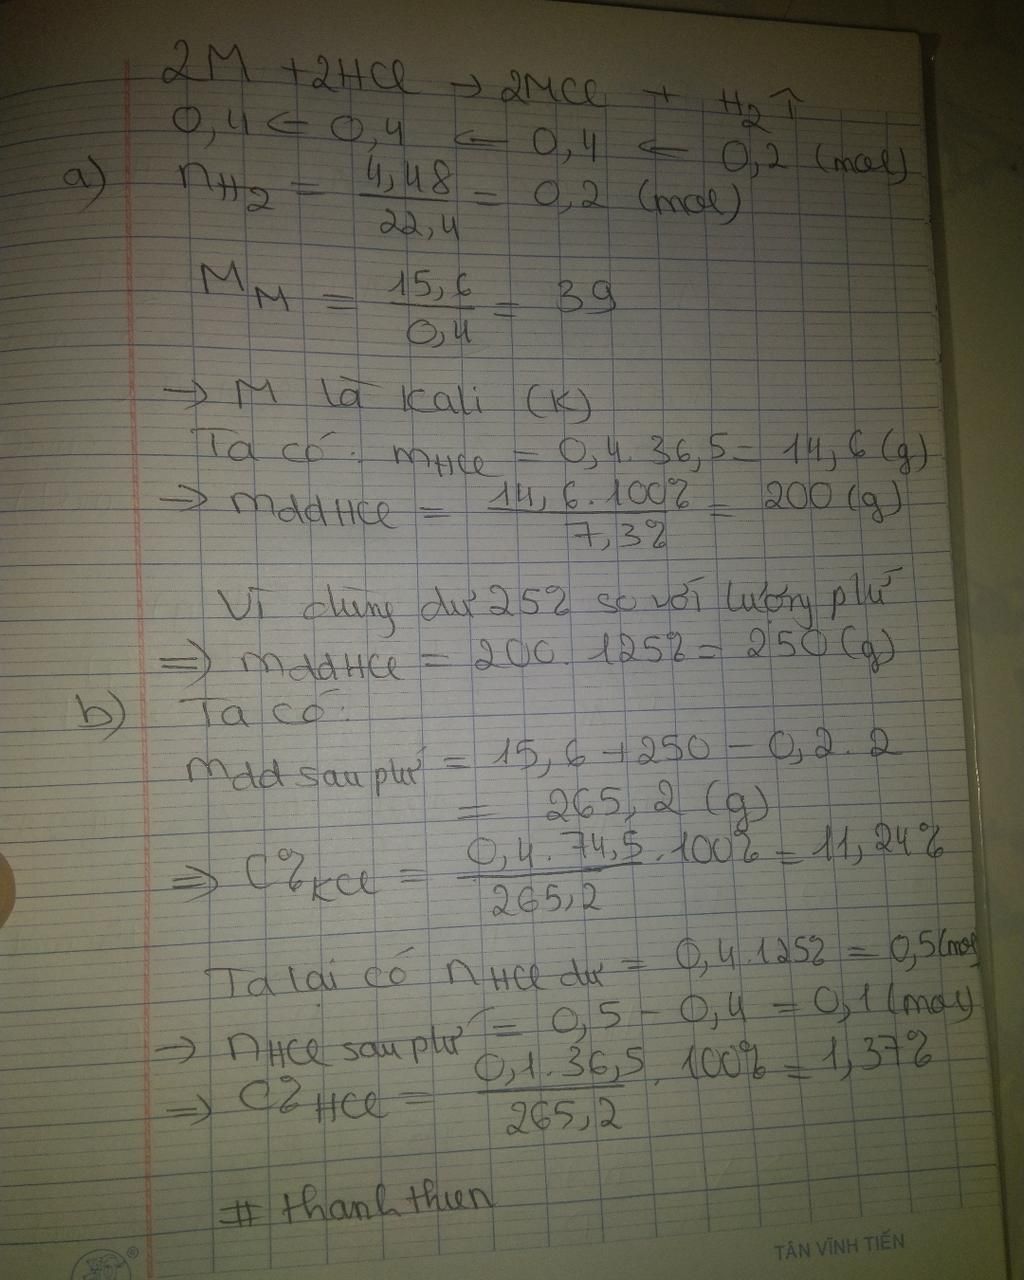 2M + 2HCl → 2MCl + H₂↑
0,4 ← 0,4 ← 0,4 ← 0,2 (mol)
a) nH₂ = 4,48/22,4 = 0,2 (mol)
M_M = 15,6/0,4 = 39
→ M là Kali (K)
Ta có: mHCl = 0,4.36,5 = 14,6 (g)
→ mddHCl = 14,6.100%/7,3% = 200 (g)
Vì dùng dư 25% so với lượng phứ
⇒ mddHCl = 200.125% = 250 (g)
b) Ta có:
mdd sau phứ = 15,6 + 250 - 0,2.2
= 265,2 (g)
⇒ C%KCl = 0,4.74,5.100%/265,2 = 11,24%
Ta lại có nHCl dư = 0,4.125% = 0,5 (mol
→ nHCl sau phứ = 0,5 - 0,4 = 0,1 (mol)
⇒ C%HCl = 0,1.36,5/265,2.100% = 1,37%
# thanh thien
TÂN VĨNH TIẾN